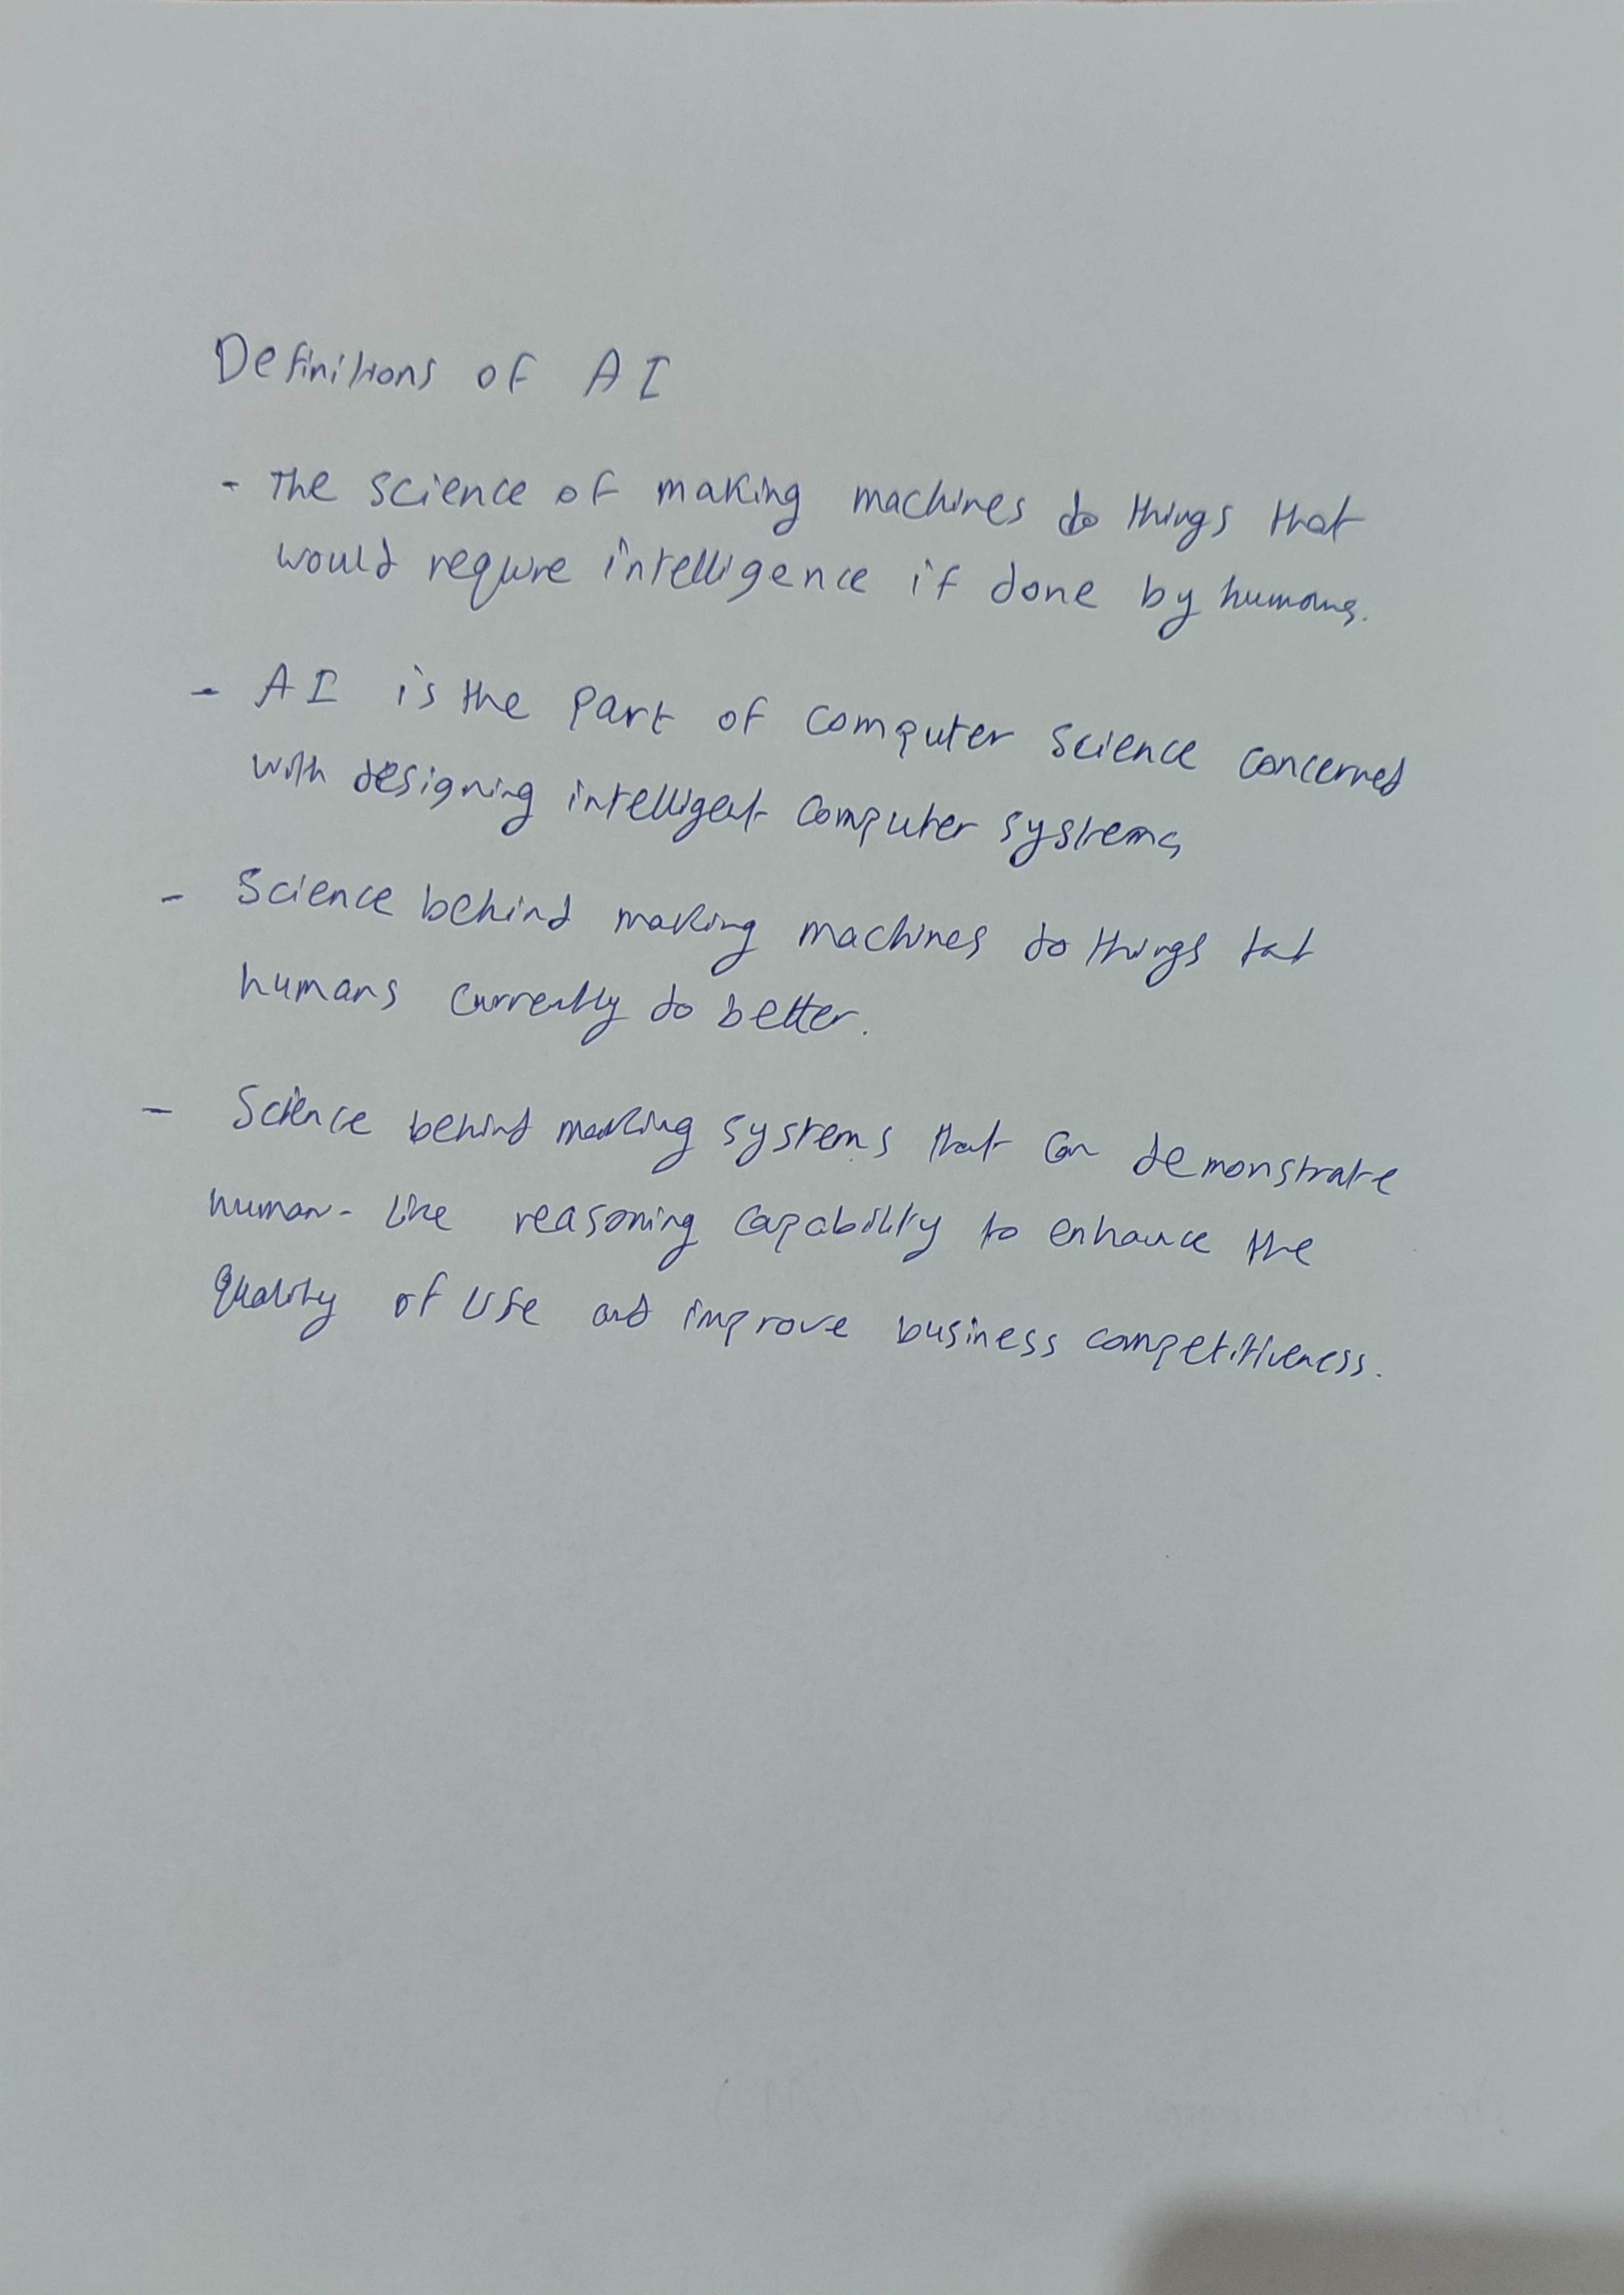 Definitions of AI
- The science of making machines do things that
would require intelligence if done by humans.
- AI is the part of computer science concerned
with designing intelligent computer systems,
- Science behind making machines do things tat
humans currently do better.
- Science behind making systems that can demonstrate
human-like reasoning capability to enhance the
Quality of life and improve business competitiveness.